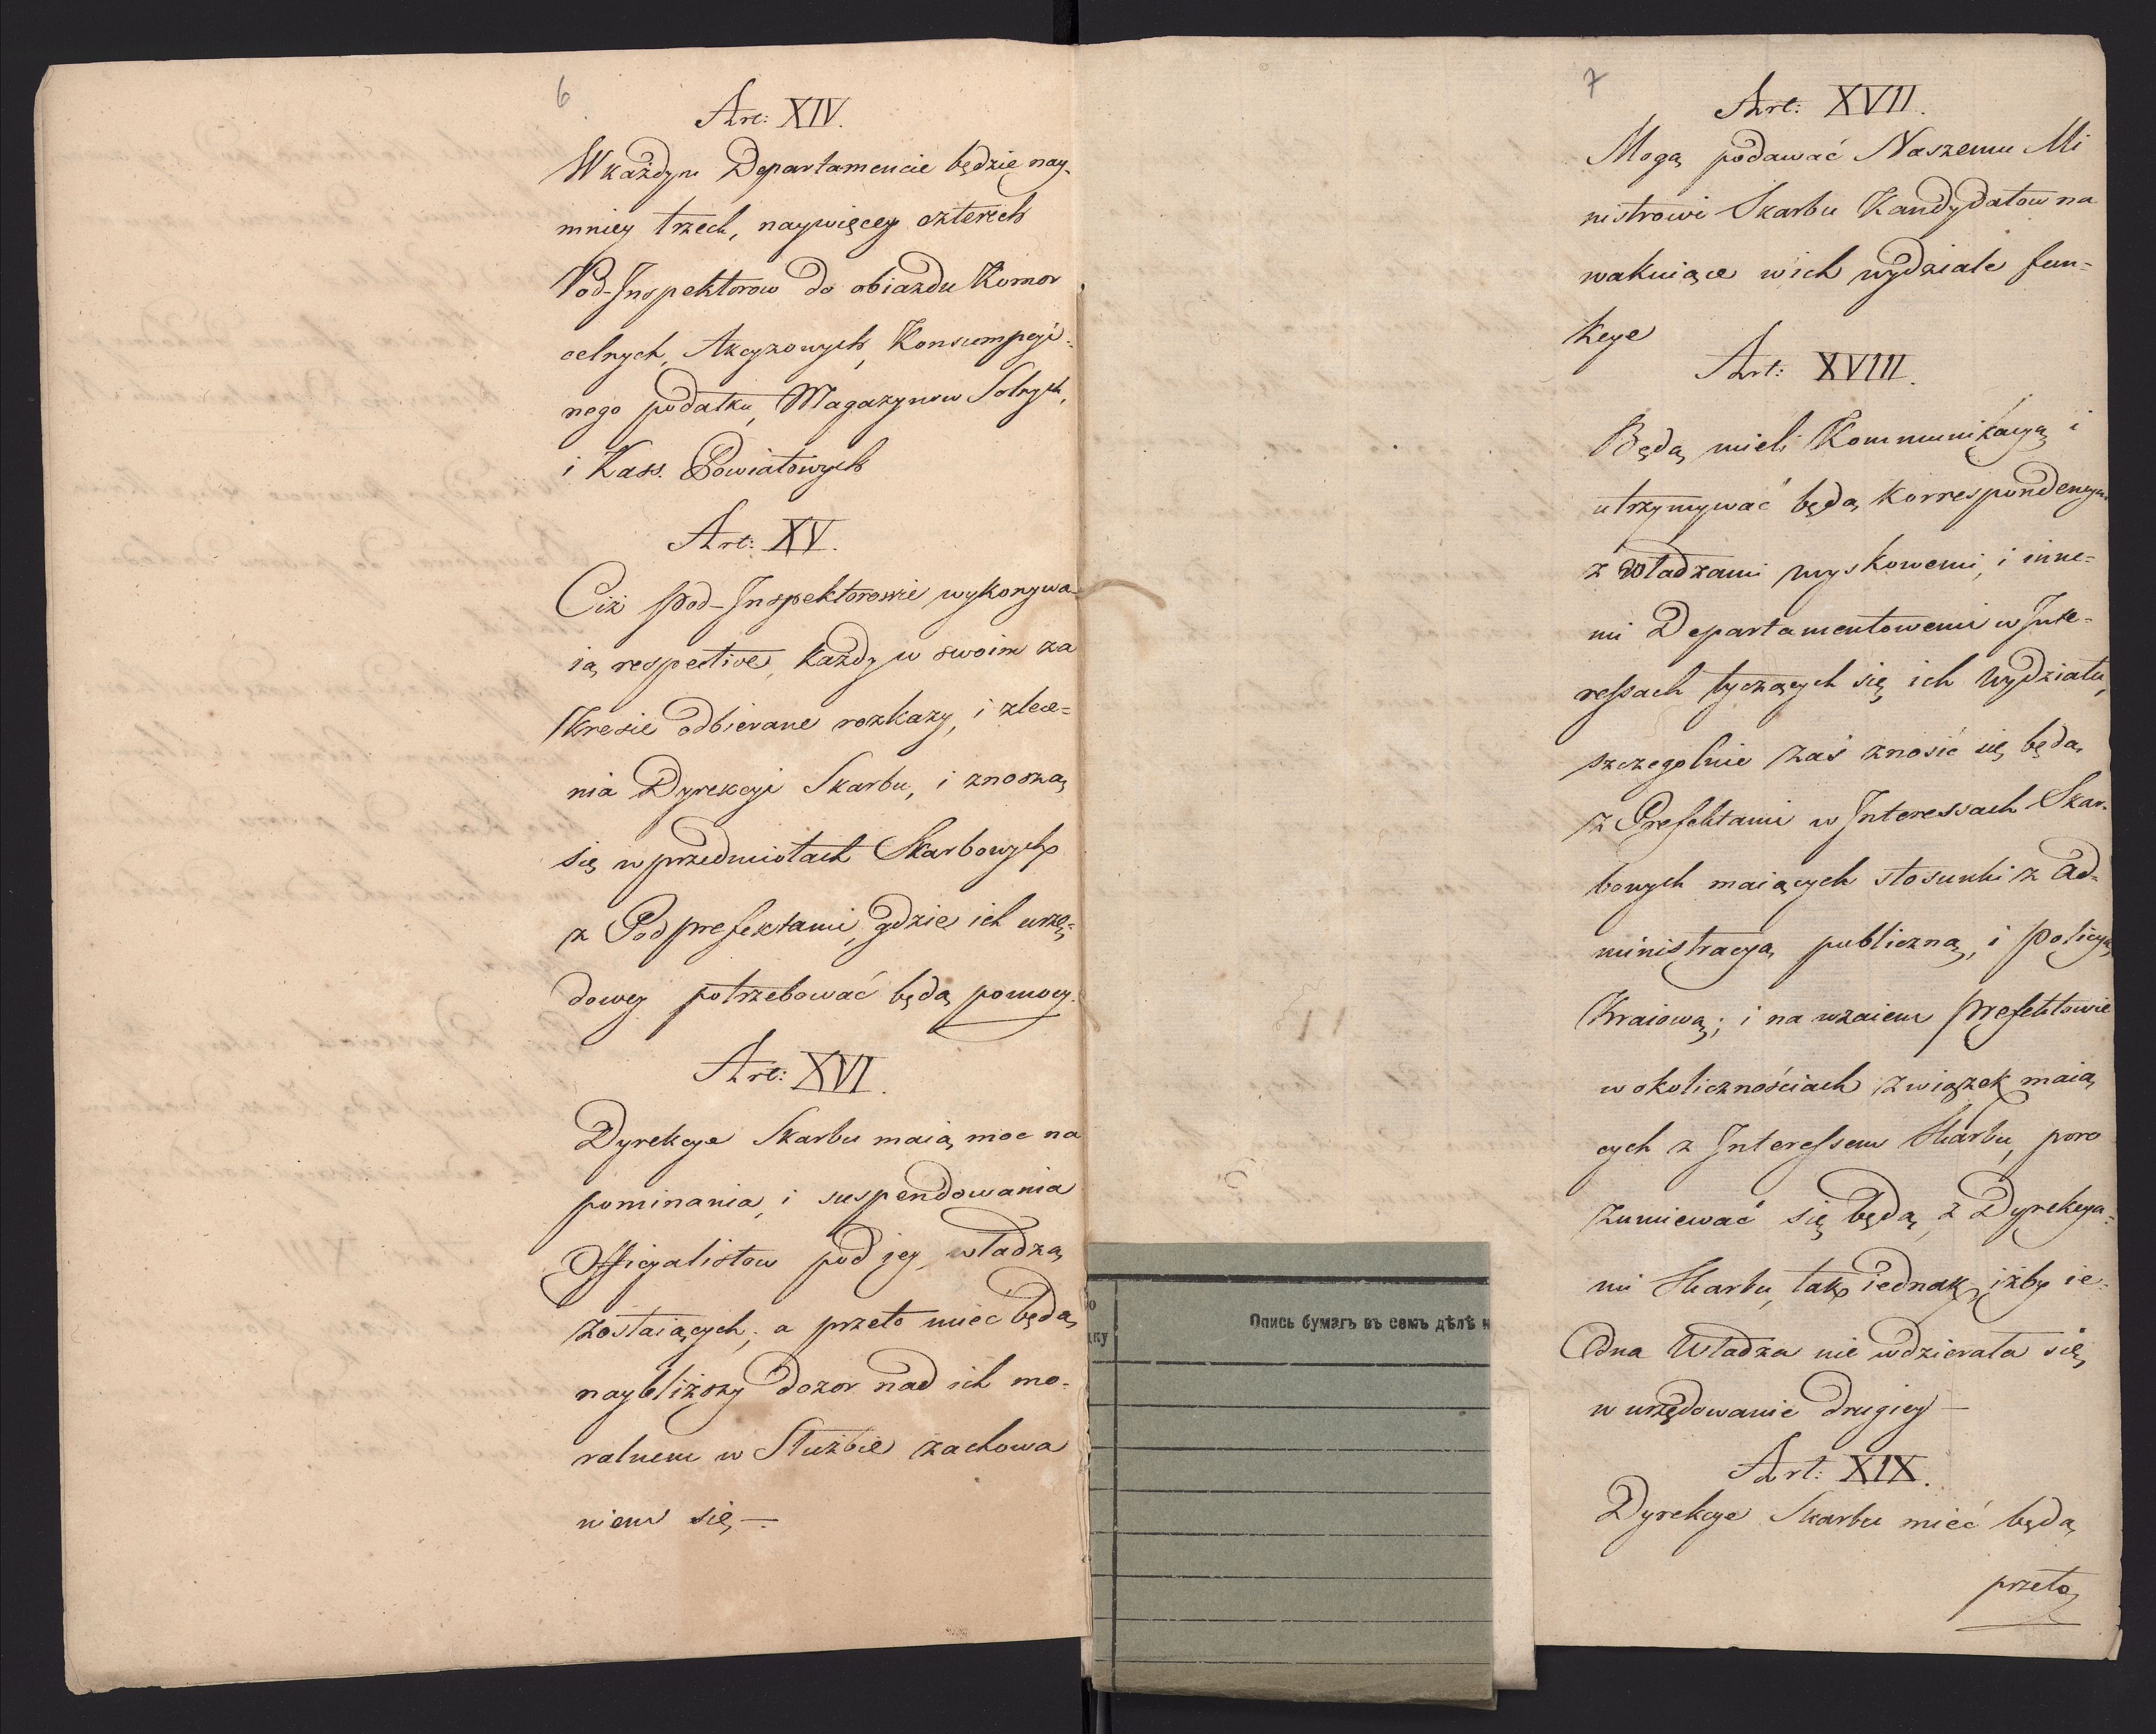 6
Art: XIV.
W każdym Departamencie będzie nay-
mniey trzech, naywięcey czterech
Pod-Inspektorow do obiazdu Komor
celnych, Akcyzowych, Konsumpcyi-
nego podatku, Magazynow Solnych,
i Kass. Powiatowych
Art: XV.
Ciż Pod-Inspektorowie wykonywa-
ią respective, każdy w swoim za
kresie odbierane rozkazy, i zlece-
nia Dyrekcyi Skarbu, i znoszą
się w przedmiotach Skarbowych
z Podprefektami, gdzie ich urzę-
dowey potrzebować będą pomocy.
Art: XVI.
Dyrekcye Skarbu maią moc na
pominania, i suspendowania
Officyalistow pod jey władzą
zostaiących; a przeto miec będą
naybliższy dozor nad ich mo-
ralnem w Służbie zachowa
niem się.—
7
Art: XVII.
Mogą podawać Naszemu Mi
nistrowi Skarbu Kandydatow na
wakuiące w ich wydziale fun-
kcye
Art: XVIII.
Będą mieli Kommunikacyą i
utrzymywać będą korrespondencyą
z Władzami woyskowemi, i inne-
mi Departamentowemi w Inte-
ressach tyczących się ich Wydziału,
szczegolnie zaś znosić się będą
z Prefektami w Interessach Skar-
bowych maiących stosunki z Ad-
ministracyą publiczną, i Policyą
Kraiową; i na wzaiem Prefektowie
w okolicznościach związek maią
cych z Interessem Skarbu, poro
zumiewać się będą z Dyrekcya-
mi Skarbu, tak iednak, iżby ie-
dna Władza nie wdzierała się
w urzędowanie drugiey —
Art: XIX.
Dyrekcye Skarbu mieć będą
przeto
Опись бумагъ въ семъ дѣлѣ